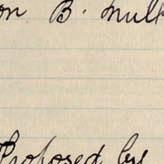 on B. Mult
Proposed by